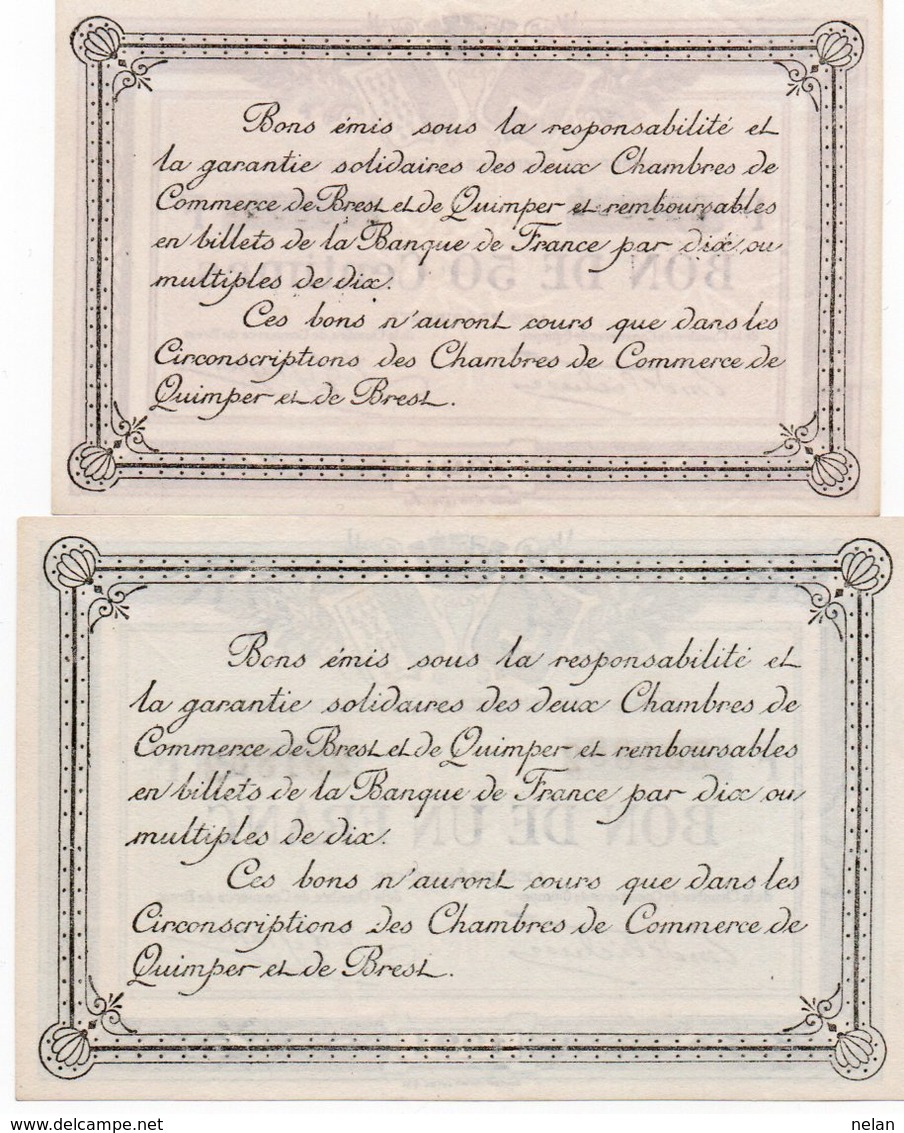 Bons émis sous la responsabilité et
la garantie solidaires des deux Chambres de
Commerce de Brest et de Quimper et remboursables
en billets de la Banque de France par dix ou
multiples de dix.
Ces bons n'auront cours que dans les
Circonscriptions des Chambres de Commerce de
Quimper et de Brest.
BON DE 50 Cent
Bons émis sous la responsabilité et
la garantie solidaires des deux Chambres de
Commerce de Brest et de Quimper et remboursables
en billets de la Banque de France par dix ou
multiples de dix.
Ces bons n'auront cours que dans les
Circonscriptions des Chambres de Commerce de
Quimper et de Brest.
BON DE UN FRANC
www.delcampe.net
nelan